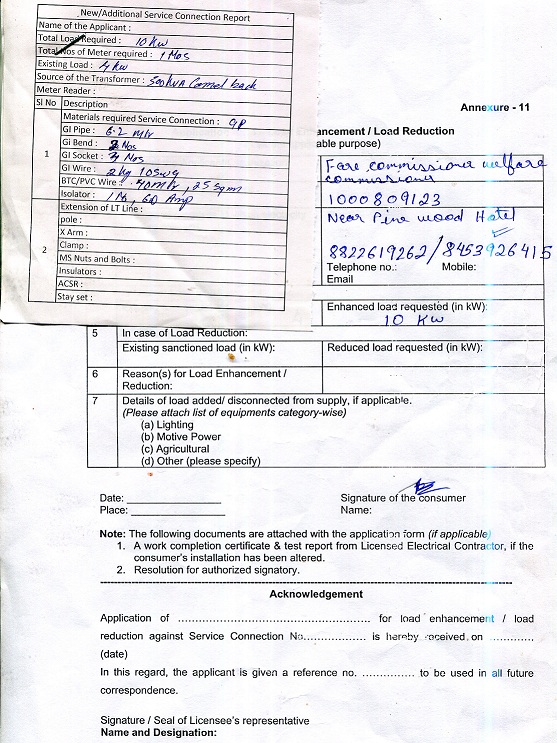 New/Additional Service Connection Report
Name of the Applicant :
Total Load Required : 10 KW
Total Nos of Meter required : 1 Nos
Existing Load : 4 KW
Source of the Transformer : 500 KVA Camel back
Meter Reader :
Sl No Description
Materials required Service Connection : GP
1
GI Pipe : 6.2 Mtr
GI Bend : 2 Nos
GI Socket : 3 Nos
GI Wire : 2 kg 10 swg
BTC/PVC Wire : 40 Mtr, 25 Sqm
Isolator : 1 No, 60 Amp
2
Extension of LT Line :
pole :
X Arm :
Clamp :
MS Nuts and Bolts :
Insulators :
ACSR :
Stay set :
Annexure - 11
ancement / Load Reduction
able purpose)
Fare commissioner welfare
commissioner
1000809123
Near Pine wood Hotel
8822619262/8453926415
Telephone no.: Mobile:
Email
Enhanced load requested (in kW):
10 KW
5 In case of Load Reduction:
Existing sanctioned load (in kW): Reduced load requested (in kW):
6 Reason(s) for Load Enhancement /
Reduction:
7 Details of load added/ disconnected from supply, if applicable.
(Please attach list of equipments category-wise)
(a) Lighting
(b) Motive Power
(c) Agricultural
(d) Other (please specify)
Date: _______________ Signature of the consumer
Place: _______________ Name:
Note: The following documents are attached with the application form (if applicable)
1. A work completion certificate & test report from Licensed Electrical Contractor, if the
consumer's installation has been altered.
2. Resolution for authorized signatory.
Acknowledgement
Application of ................................................ for load enhancement / load
reduction against Service Connection No................ is hereby received on ............
(date)
In this regard, the applicant is given a reference no. ............. to be used in all future
correspondence.
Signature / Seal of Licensee's representative
Name and Designation: